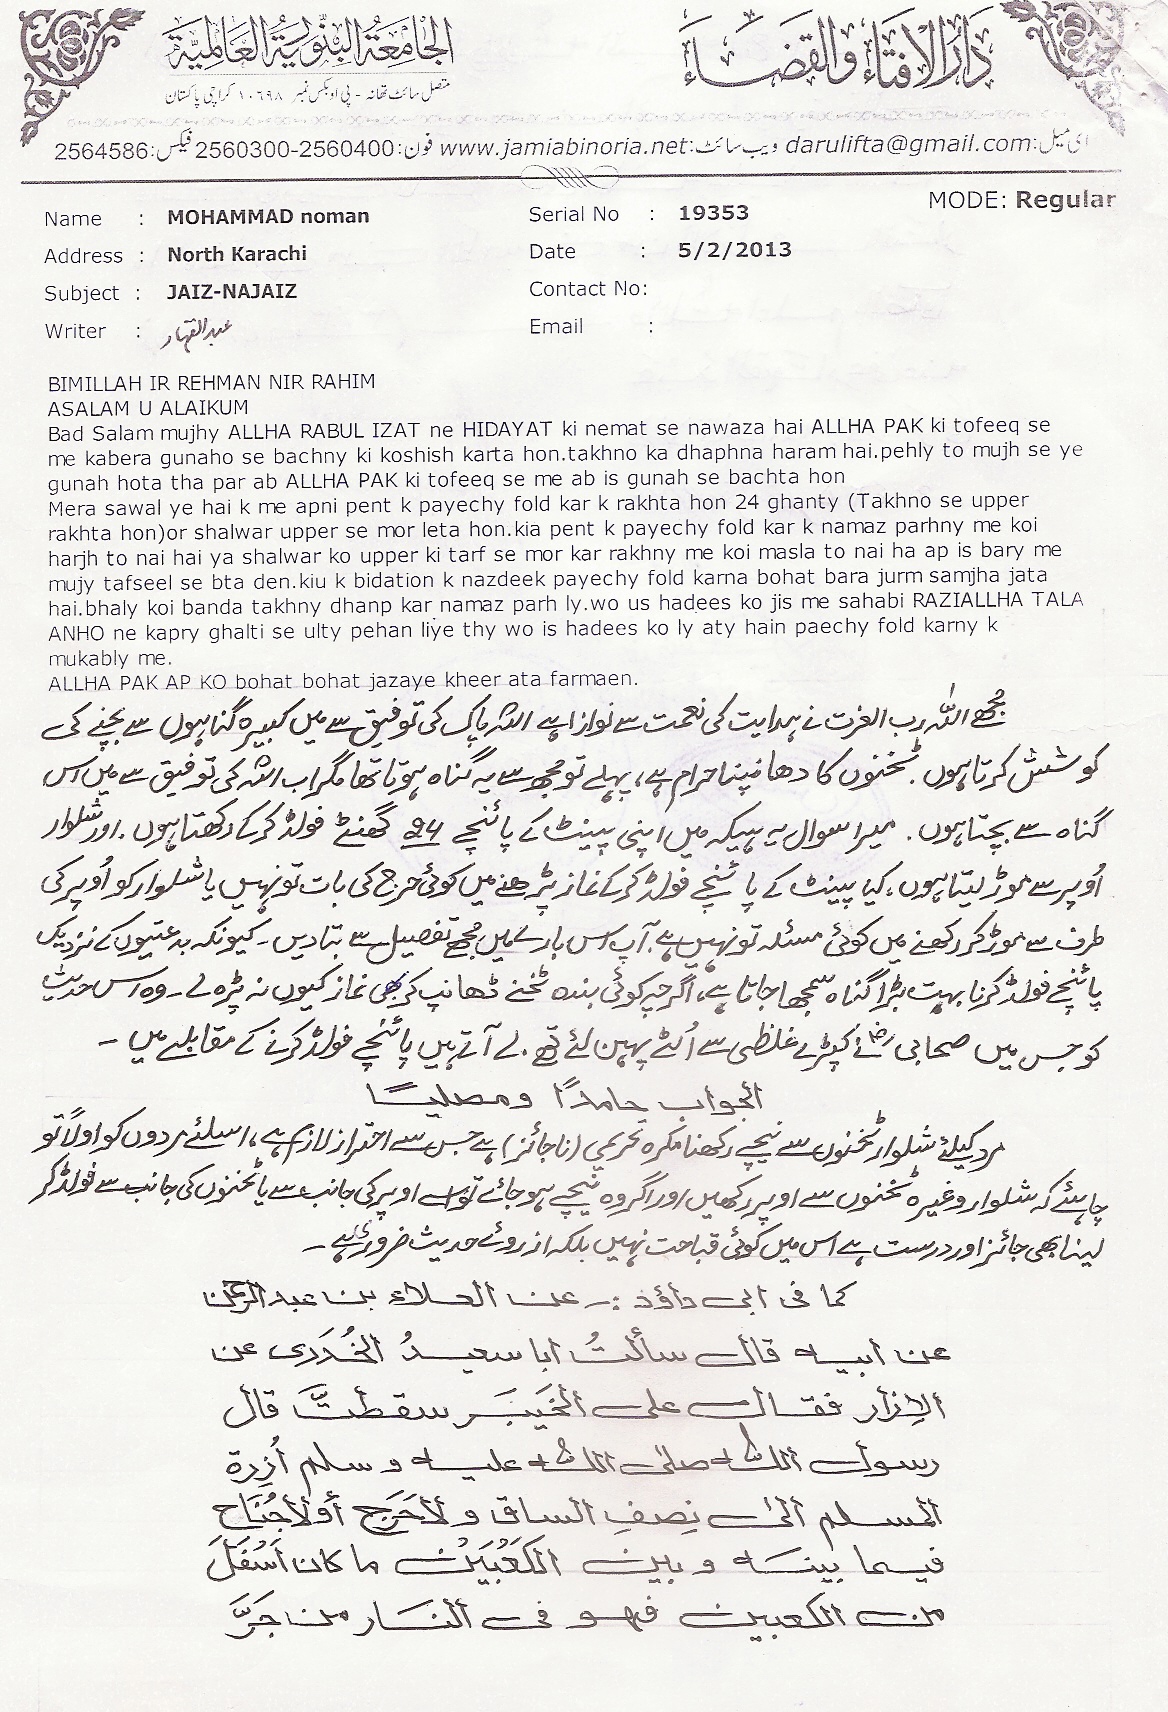 الجامعة البنورية العالمية
دار الافتاء والقضاء
متصل سائٹ تھانہ - پی او بکس نمبر ۱۰۶۹۸ کراچی پاکستان
ای میل:darulifta@gmail.com ویب سائٹ:www.jamiabinoria.net فون:2560300-2560400 فیکس:2564586
MODE: Regular
Name : MOHAMMAD noman
Serial No : 19353
Address : North Karachi
Date : 5/2/2013
Subject : JAIZ-NAJAIZ
Contact No:
Writer : عبدالقہار
Email :
BIMILLAH IR REHMAN NIR RAHIM
ASALAM U ALAIKUM
Bad Salam mujhy ALLHA RABUL IZAT ne HIDAYAT ki nemat se nawaza hai ALLHA PAK ki tofeeq se
me kabera gunaho se bachny ki koshish karta hon.takhno ka dhaphna haram hai.pehly to mujh se ye
gunah hota tha par ab ALLHA PAK ki tofeeq se me ab is gunah se bachta hon
Mera sawal ye hai k me apni pent k payechy fold kar k rakhta hon 24 ghanty (Takhno se upper
rakhta hon)or shalwar upper se mor leta hon.kia pent k payechy fold kar k namaz parhny me koi
harjh to nai hai ya shalwar ko upper ki tarf se mor kar rakhny me koi masla to nai ha ap is bary me
mujy tafseel se bta den.kiu k bidation k nazdeek payechy fold karna bohat bara jurm samjha jata
hai.bhaly koi banda takhny dhanp kar namaz parh ly.wo us hadees ko jis me sahabi RAZIALLHA TALA
ANHO ne kapry ghalti se ulty pehan liye thy wo is hadees ko ly aty hain paechy fold karny k
mukably me.
ALLHA PAK AP KO bohat bohat jazaye kheer ata farmaen.
مجھے اللہ رب العزت نے ہدایت کی نعمت سے نوازا ہے اللہ پاک کی توفیق سے میں کبیرہ گناہوں سے بچنے کی
کوشش کرتا ہوں. ٹخنوں کا دھانپنا حرام ہے، پہلے تو مجھ سے یہ گناہ ہوتا تھا مگر اب اللہ کی توفیق سے میں اس
گناہ سے بچتا ہوں. میرا سوال یہ ہیکہ میں اپنی پینٹ کے پائنچے 24 گھنٹے فولڈ کرکے رکھتا ہوں. اور شلوار
اُوپر سے موڑ لیتا ہوں، کیا پینٹ کے پائنچے فولڈ کرکے نماز پڑھنے میں کوئی حرج کی بات تو نہیں یا شلوار کو اُوپر کی
طرف سے موڑ کر رکھنے میں کوئی مسئلہ تو نہیں ہے. آپ اس بارے میں مجھے تفصیل سے بتا دیں - کیونکہ بدعتیوں کے نزدیک
پائنچے فولڈ کرنا بہت بڑا گناہ سمجھا جاتا ہے، اگرچہ کوئی بندہ ٹخنے ڈھانپ کر بھی نماز کیوں نہ پڑہ لے - وہ اس حدیث
کو جس میں صحابی رضؓ نے کپڑے غلطی سے اُلٹے پہن لئے تھے. لے آتے ہیں پائنچے فولڈ کرنے کے مقابلے میں -
الجواب حامدًا ومصلیًا
مرد کیلئے شلوار ٹخنوں سے نیچے رکھنا مکرہ تحریمی (ناجائز) ہے جس سے احتراز لازم ہے، اسلئے مردوں کو اولاً تو
چاہئے کہ شلوار وغیرہ ٹخنوں سے اوپر رکھیں اور اگر وہ نیچے ہو جائے تو اسے اوپر کی جانب سے یا ٹخنوں کی جانب سے فولڈ کر
لینا بھی جائز اور درست ہے اس میں کوئی قباحت نہیں بلکہ از روئے حدیث ضروری ہے -
كما فى ابى داؤد :- عن العلاء بن عبدالرحمٰن
عن ابيه قال سألتُ ابا سعيدُ الخُدْرى عن
الاِزار فقال على الخَبِيَر سقطتَّ قال
رسول اللّٰه صلى اللّٰه عليه وسلم اُزِرة
المسلم الىٰ نِصفِ الساق ولاَحَرَج أولاَجُنَاح
فيما بينَه وبين الكَعْبَيْن ما كان اَسْفَلَ
من الكعبين فهو فى النَار من جَرَّ